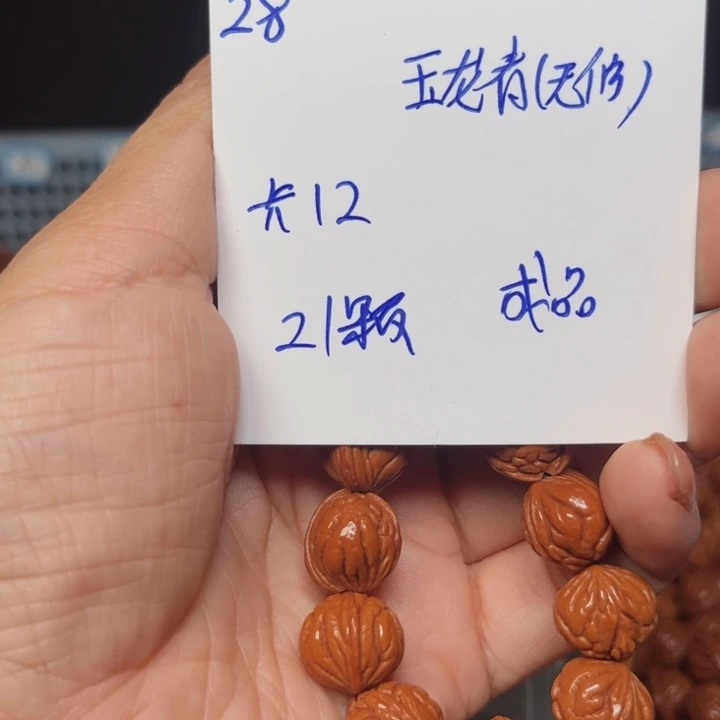 28
玉龙青(无修)
卡12
21颗 成品